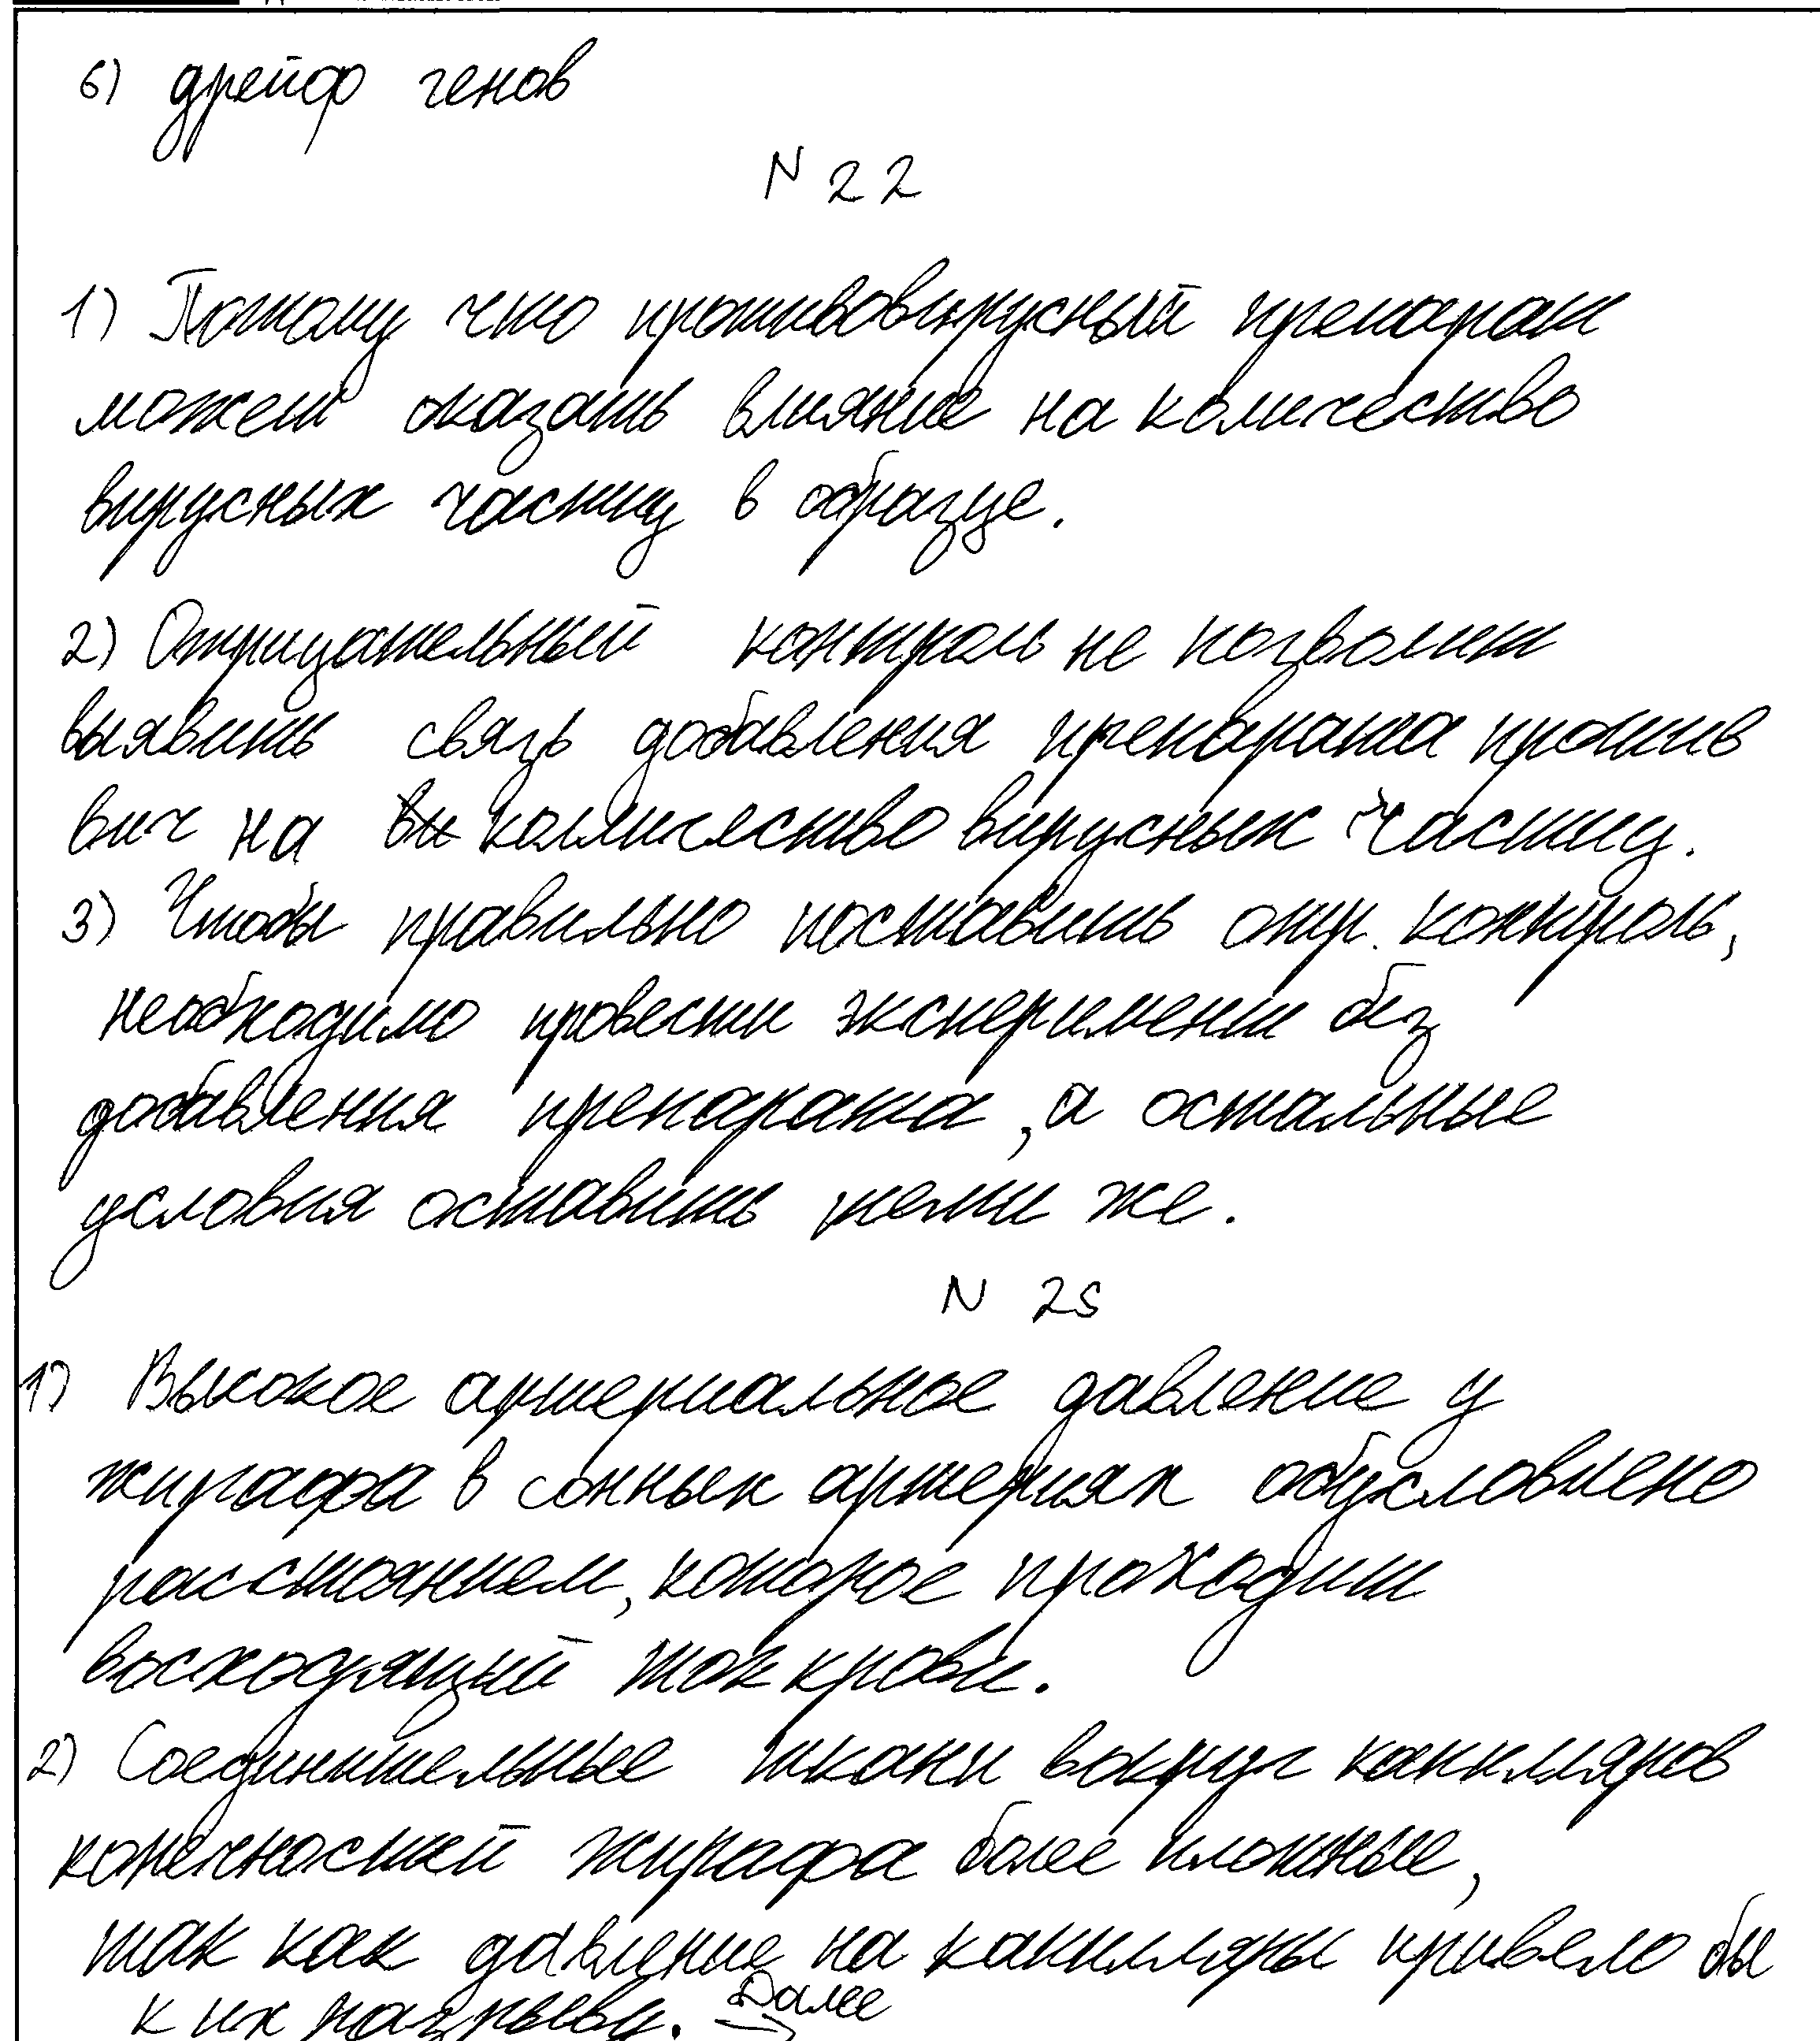 6) дрейф генов
N 22
1) Потому что противовирусный препарат
может оказать влияние на количество
вирусных частиц в образце.
2) Отрицательный контроль не позволит
выявить связь добавления препарата против
вич на количество вирусных частиц.
3) Чтобы правильно поставить отр. контроль,
необходимо провести эксперимент без
добавления препарата, а остальные
условия оставить теми же.
N 25
1) Высокое артериальное давление у
жирафа в сонных артериях обусловлено
расстоянием, которое проходит
восходящий ток крови.
2) Соединительные ткани вокруг капилляров
конечностей жирафа более плотные,
так как давление на капилляры привело бы
к их разрыву. Далее